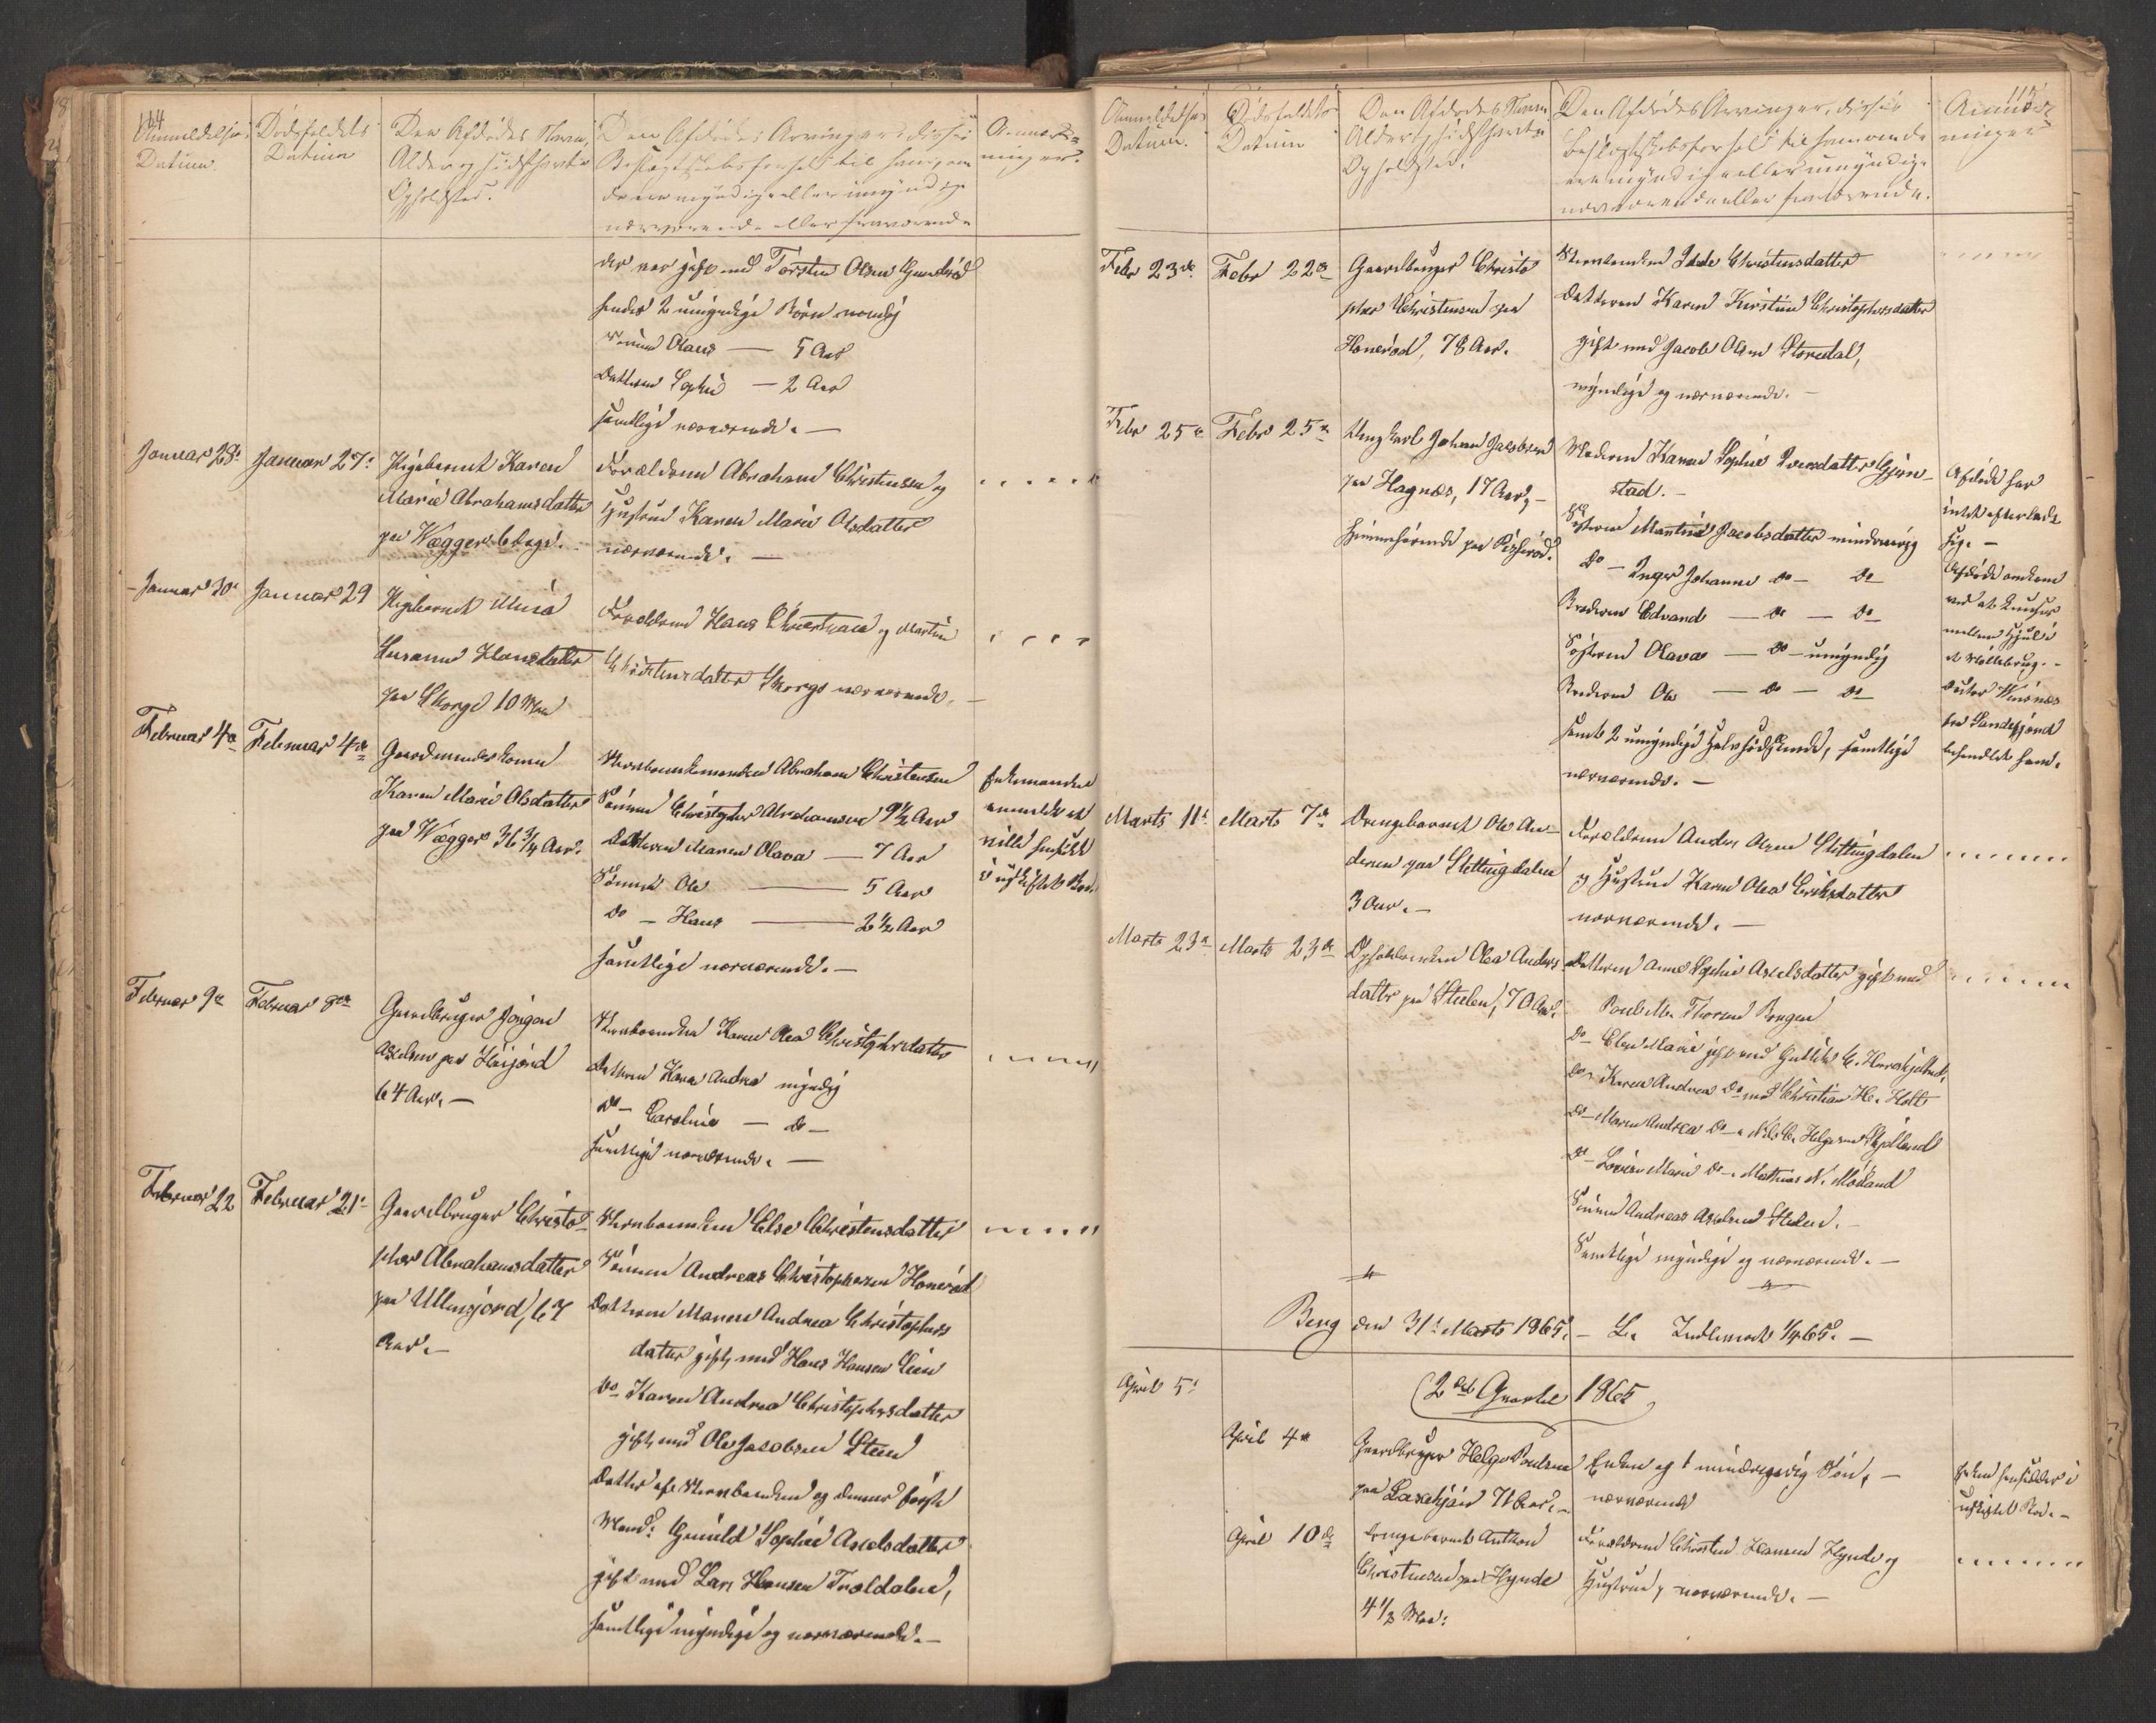 114
Anmeldelses
Datum
Dødsfaldets
Datum
Den Afdødes Navn,
Alder og sidsthavte
Opholdsted.
Den Afdødes Arvinger, disses
Beslægtskabsforhold til ham, om
de ere myndige eller umyndige
nærværende eller fraværende
Anmærk-
ninger.
der var gift med Torsten Olsen
hendes 2 umyndige Børn nemlig
Sønnen Olaus — 5 Aar
Datteren Sophie — 2 Aar
samtlige nærværende. —
Januar 28de
Januar 27de
Pigebarnet Karen
Marie Abrahamsdatter
paa Wegger 6 Dage.
Forældrene Abraham Christensen og
Hustrue Karen Marie Olsdatter
nærværende. —
Januar 30te
Januar 29
Pigebarnet
Susanne Hansdatter
paa Skorge 10 Mdr
Forældrene Hans Christensen og Martine
Christensdatter Skorge nærværende. —
Februar 4de
Februar 4de
Gaardmandskonen
Karen Marie Olsdatter
paa Wegger 36 3/4 Aar.
Abraham Christensen
Sønnen Christopher Abrahamsen 9 1/2 Aar
Datteren Maren Olava — 7 Aar
Sønnen Ole — 5 Aar
do — Hans — 2 1/2 Aar
samtlige nærværende. —
Enkemanden
anmeldte at
ville hensidde
i uskiftet Bo.
Februar 9de
Februar 9de
Gaardbruger Jørgen
Axelsen paa Høijord
64 Aar. —
Karen Olea Christophersdatter
Datteren Karen Andrea myndig
do — Caroline — do —
samtlige nærværende. —
Februar 22
Februar 21de
Gaardbruger Christo-
pher Abrahamsdatter
paa Ullensjord, 67
Aar. —
Else Christensdatter
Sønnen Andreas Christophersen Honerød
Datteren Maren Andrea Christophers
datter gift med Hans Hansen Lien
do Karen Andrea Christophersdatter
gift med Ole Jacobsen Steen
Datter af og dennes første
Mand: Gunild Sophie Axelsdatter
gift med Lars Hansen Troldalen,
samtlige myndige og nærværende. —
115
Anmeldelses
Datum.
Dødsfaldets
Datum
Den Afdødes Navn
Alder og sidsthavte
Opholdsted.
Den Afdødes Arvinger, disses
Beslægtskabsforhold til ham, om de
ere myndige eller umyndige
nærværende eller fraværende.
Anmærk-
ninger
Febr 23de
Febr 22de
Gaardbruger Christo
pher Christensen paa
Honerød, 78 Aar.
Christensdatter
Datteren Karen Kirstine Christophersdatter
gift med Jacob Olsen Storedal,
myndige og nærværende. —
Febr 25de
Febr 25de
Ungkarl Johan Jacobsen
paa Hagnæs, 17 Aar, —
hjemmehørende paa
Moderen Karen Sophie Iversdatter Gjern-
stad. —
Søsteren Martine Jacobsdatter mindreaarig
do — Inger Johanne do — do
Broderen Edvard — do — do
Søsteren Olava — do — umyndig
Broderen Ole — do — do
samt 2 umyndige Halvsødskende, samtlige
nærværende. —
Afdøde har
intet efterladt
sig. —
Afdøde omkom
ved at
mellem Hjulet i
et Møllebrug. —
Doctor
fra Sandefjord
behandlede ham.
Marts 11te
Marts 7de
Drengebarnet Ole An-
dersen paa Slettingdalen
3 Aar. —
Forældrene Anders Olsen Slettingdalen
og Hustrue Karen Olea Eriksdatter
nærværende. —
Marts 23de
Marts 23de
Olea Anders
datter paa Steelen, 70 Aar.
Datteren Anne Sophie Axelsdatter gift med
Thorsen Bergan
do — Elen Marie gift med
do — Karen Andrea do med Christian H. Holt
do — Maren Andrea do — Nils C. Helgesen Skjelland
do — Lovise Marie do — Mathias N. Moland
Sønnen Andreas Axelsen Steelen. —
Samtlige myndige og nærværende. —
Berg den 31te Marts 1865. — Indleveret 1/4 65. —
April 5te
(2det Quartal 1865)
April 4de
Gaardbruger Helge Paulsen
paa 71 Aar. —
Enken og 1 mindreaarig Søn, —
nærværende
Enken hensidder i
uskiftet Bo. —
April 10de
Drengebarnet Anthon
Christensen paa Hynde
4 1/2 Mdr:
Forældrene Christen Hansen Hynde og
Hustrue, nærværende. —